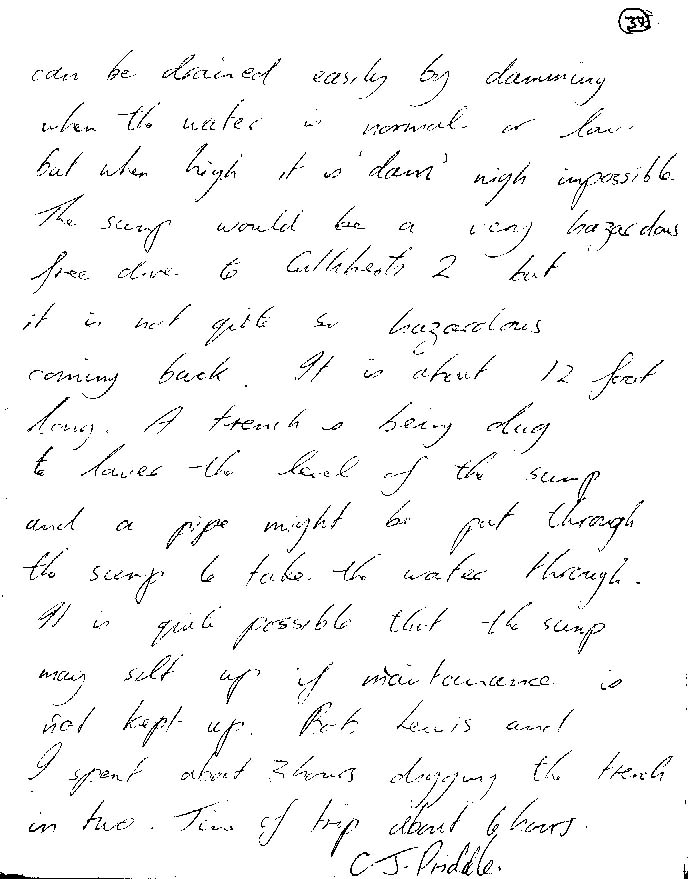 34
can be drained easily by damming
when the water is normal or low
but when high it is 'dam' nigh impossible.
The sump would be a very hazardous
free dive to Cuthberts 2 but
it is not quite so hazardous
coming back. It is about 12 foot
long. A trench is being dug
to lower the level of the sump
and a pipe might be put through
the sump to take the water through.
It is quite possible that the sump
may silt up if maintanance is
not kept up. Bob Lewis and
I spent about 3 hours digging the trench
in two. Time of trip about 6 hours.
C J. Priddle.